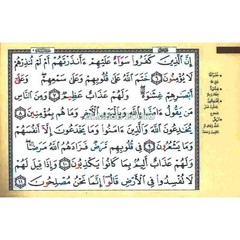 إِنَّ ٱلَّذِينَ كَفَرُوا۟ سَوَآءٌ عَلَيْهِمْ ءَأَنذَرْتَهُمْ أَمْ لَمْ تُنذِرْهُمْ
لَا يُؤْمِنُونَ ٦ خَتَمَ ٱللَّهُ عَلَىٰ قُلُوبِهِمْ وَعَلَىٰ سَمْعِهِمْ وَعَلَىٰٓ
أَبْصَٰرِهِمْ غِشَٰوَةٌ وَلَهُمْ عَذَابٌ عَظِيمٌ ٧ وَمِنَ ٱلنَّاسِ
مَن يَقُولُ ءَامَنَّا بِٱللَّهِ وَبِٱلْيَوْمِ ٱلْءَاخِرِ وَمَا هُم بِمُؤْمِنِينَ ٨
يُخَٰدِعُونَ ٱللَّهَ وَٱلَّذِينَ ءَامَنُوا۟ وَمَا يَخْدَعُونَ إِلَّآ أَنفُسَهُمْ
وَمَا يَشْعُرُونَ ٩ فِى قُلُوبِهِم مَّرَضٌ فَزَادَهُمُ ٱللَّهُ مَرَضًا
وَلَهُمْ عَذَابٌ أَلِيمٌۢ بِمَا كَانُوا۟ يَكْذِبُونَ ١٠ وَإِذَا قِيلَ لَهُمْ
لَا تُفْسِدُوا۟ فِى ٱلْأَرْضِ قَالُوٓا۟ إِنَّمَا نَحْنُ مُصْلِحُونَ ١١